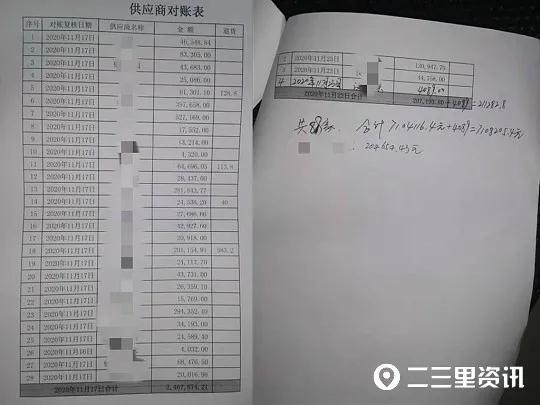 供应商对账表
序号 对账复核日期 供应商名称 金额 退货
1 2020年11月17日 46,548.84
2 2020年11月17日 83,305.00
3 2020年11月17日 43,683.00
4 2020年11月17日 25,086.00
5 2020年11月17日 61,301.10 128.8
6 2020年11月17日 397,658.00
7 2020年11月17日 527,160.00
8 2020年11月17日 17,552.00
9 2020年11月17日 13,214.00
10 2020年11月17日 4,320.00
11 2020年11月17日 64,696.05 113.8
12 2020年11月17日 28,437.00
13 2020年11月17日
14 2020年11月17日 24,538.20 40
15 2020年11月17日 27,686.00
16 2020年11月17日 42,927.60
17 2020年11月17日 20,918.00
18 2020年11月17日
19 2020年11月17日 24,117.70
20 2020年11月17日 43,731.00
21 2020年11月17日 26,359.10
22 2020年11月17日 15,769.00
23 2020年11月17日 294,352.40
24 2020年11月17日 34,193.00
25 2020年11月17日 24,589.40
26 2020年11月16日 4,032.00
27 2020年11月17日 68,476.50
28 2020年11月17日 20,016.98
2020年11月17日合计 2,467,874.21
2 2020年11月23日
3 2020年11月23日 44,758.00
4 2020年11月23日 4089.00
2020年11月23日合计 207,193.80 + 4089 = 211282.8
合计 7104116.4元+4089=7108205.4元
204654.43元
二三里资讯